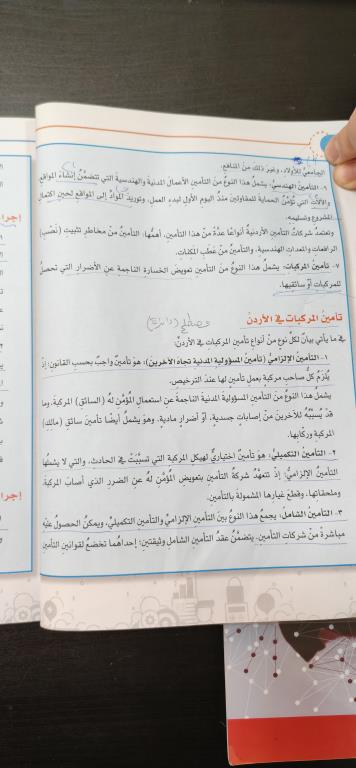 الجامعيُّ للأولاد، وغير ذلك من المنافع.
٦- التأمين الهندسيُّ: يشمل هذا النوعُ من التأمين الأعمالَ المدنية والهندسية التي تتضمَّنُ إنشاءَ المواقع
والآلاتِ التي تؤمِّنُ الحماية للمقاولين منذ اليوم الأول لبدء العمل، وتوريدَ الموادِّ إلى المواقع لحين اكتمال
المشروع وتسليمه.
وتعتمدُ شركات التأمين الأردنية أنواعًا عدَّةً من هذا التأمين، أهمُّها: التأمين من مخاطر تثبيتِ (نَصْبِ)
الرافعات والمعدات الهندسية، والتأمين من عَطَبِ المكنات.
٧- تأمين المركبات: يشمل هذا النوع من التأمين تعويض الخسارة الناجمة عن الأضرار التي تحصلُ
للمركبات أوْ سائقيها.
تأمينُ المركباتِ في الأردنِّ
في ما يأتي بيانٌ لكلِّ نوعٍ من أنواع تأمين المركبات في الأردن.
١- التأمين الإلزاميُّ (تأمين المسؤولية المدنية تجاهَ الآخرين): هوَ تأمينٌ واجبٌ بحسبِ القانون؛ إذْ
يُلزَمُ كلُّ صاحبِ مركبة بعملِ تأمينٍ لها عندَ الترخيص.
يشمل هذا النوع من التأمين المسؤولية المدنية الناجمة عن استعمالِ المؤمَّنِ لهُ (السائق) المركبة، وما
قد يُسبِّبُهُ للآخرين من إصاباتٍ جسدية، أوْ أضرارٍ مادية. وهوَ يشملُ أيضًا تأمينَ سائقِ (مالكِ)
المركبة وركَّابها.
٢- التأمين التكميليُّ: هوَ تأمينٌ اختياريٌّ لهيكلِ المركبة التي تسبَّبتْ في الحادث، والتي لا يشملُها
التأمين الإلزاميُّ؛ إذْ تتعهَّدُ شركةُ التأمين بتعويضِ المؤمَّنِ لهُ عن الضررِ الذي أصابَ المركبةَ،
وملحقاتِها، وقطعَ غيارِها المشمولةَ بالتأمين.
٣- التأمين الشاملُ: يجمعُ هذا النوعُ بينَ التأمينِ الإلزاميِّ والتأمين التكميليِّ، ويمكنُ الحصولُ عليْهِ
مباشرةً منْ شركاتِ التأمين. يتضمَّنُ عقدُ التأمين الشامل وثيقتينِ؛ إحداهُما تخضعُ لقوانينِ التأمين